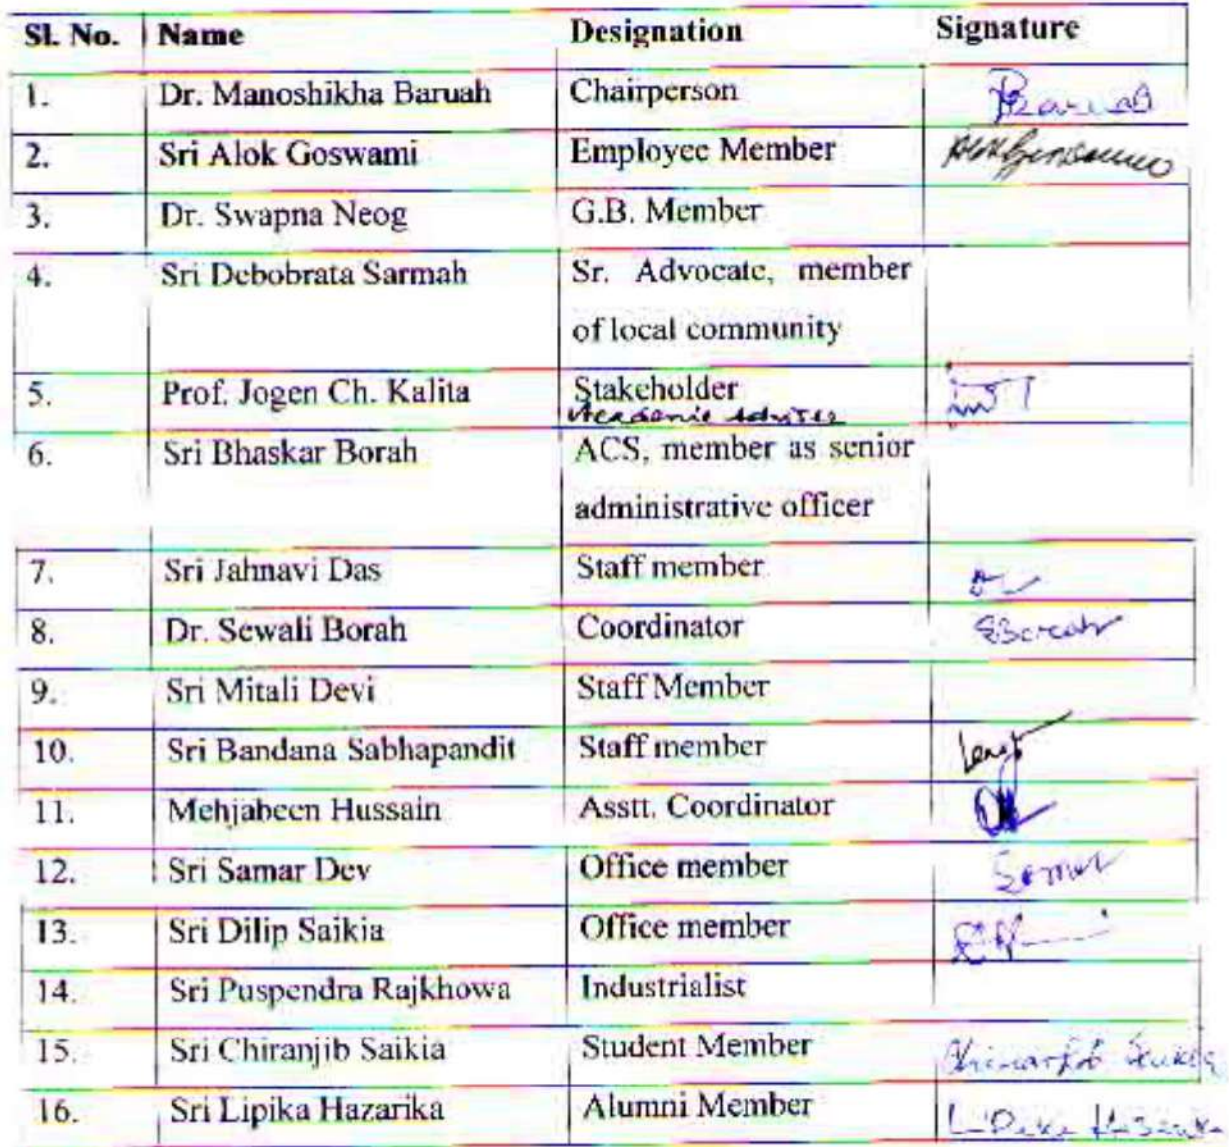 Sl. No. Name Designation Signature
1. Dr. Manoshikha Baruah Chairperson Baruah
2. Sri Alok Goswami Employee Member
3. Dr. Swapna Neog G.B. Member
4. Sri Debobrata Sarmah Sr. Advocate, member
of local community
5. Prof. Jogen Ch. Kalita Stakeholder
Academic Adviser
6. Sri Bhaskar Borah ACS, member as senior
administrative officer
7. Sri Jahnavi Das Staff member
8. Dr. Sewali Borah Coordinator SBorah
9. Sri Mitali Devi Staff Member
10. Sri Bandana Sabhapandit Staff member
11. Mehjabeen Hussain Asstt. Coordinator
12. Sri Samar Dev Office member Samar
13. Sri Dilip Saikia Office member
14. Sri Puspendra Rajkhowa Industrialist
15. Sri Chiranjib Saikia Student Member Chiranjib Saikia
16. Sri Lipika Hazarika Alumni Member Lipika Hazarika